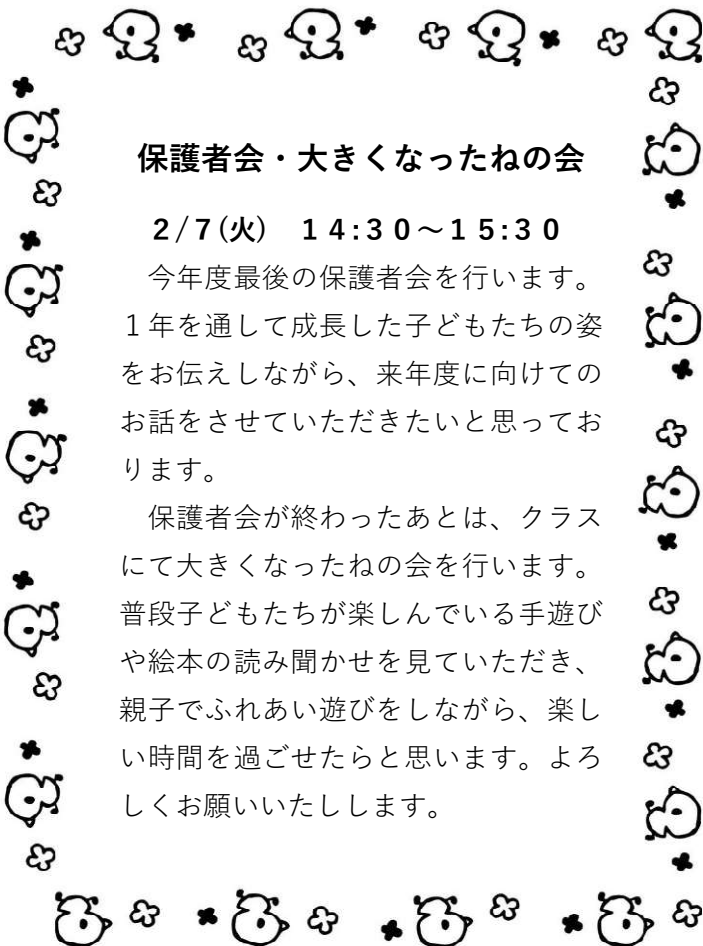 保護者会・大きくなったねの会
２/７(火)　１４:３０～１５:３０
　今年度最後の保護者会を行います。
１年を通して成長した子どもたちの姿
をお伝えしながら、来年度に向けての
お話をさせていただきたいと思ってお
ります。
　保護者会が終わったあとは、クラス
にて大きくなったねの会を行います。
普段子どもたちが楽しんでいる手遊び
や絵本の読み聞かせを見ていただき、
親子でふれあい遊びをしながら、楽し
い時間を過ごせたらと思います。よろ
しくお願いいたしします。